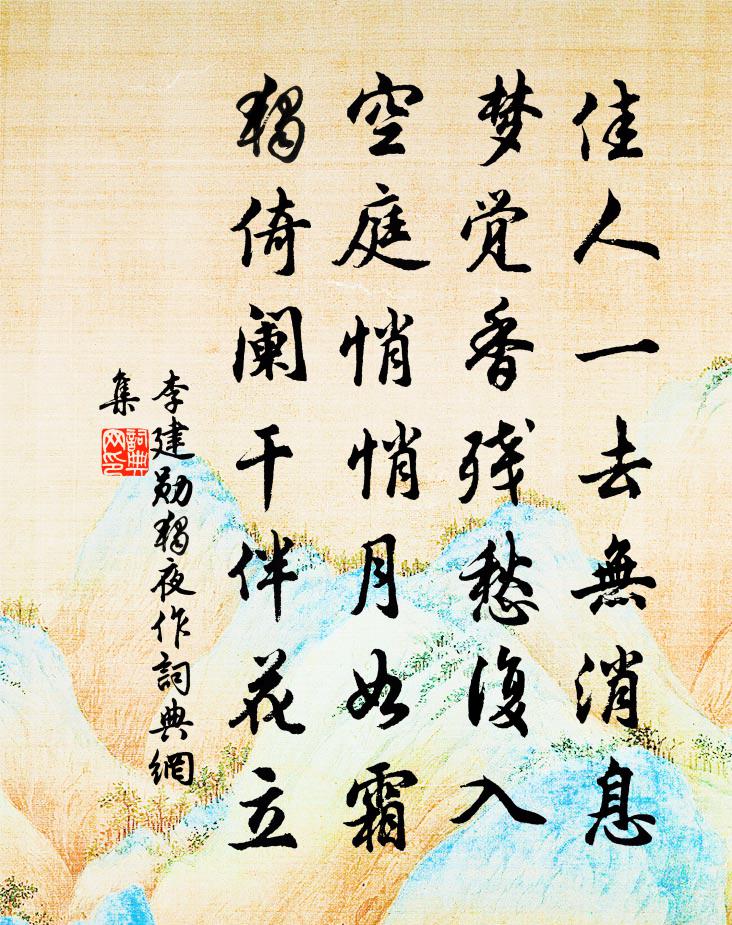 佳人一去無消息
梦觉香残愁復入
空庭悄悄月如霜
獨倚阑干伴花立
李建勋獨夜作詞典網
集
詞典
网印